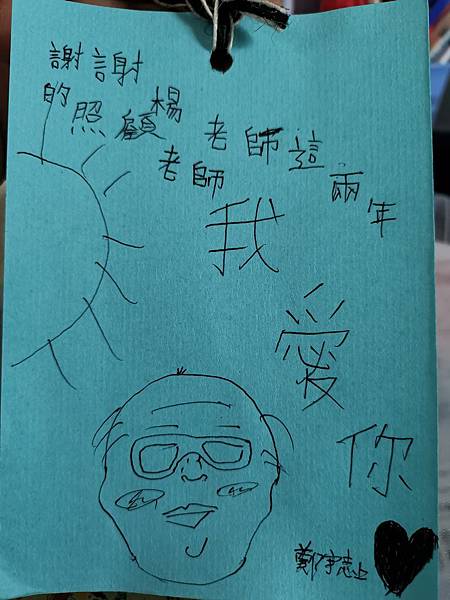 謝謝老師這兩年
的照顧楊老師
我愛你
鄭宇志上